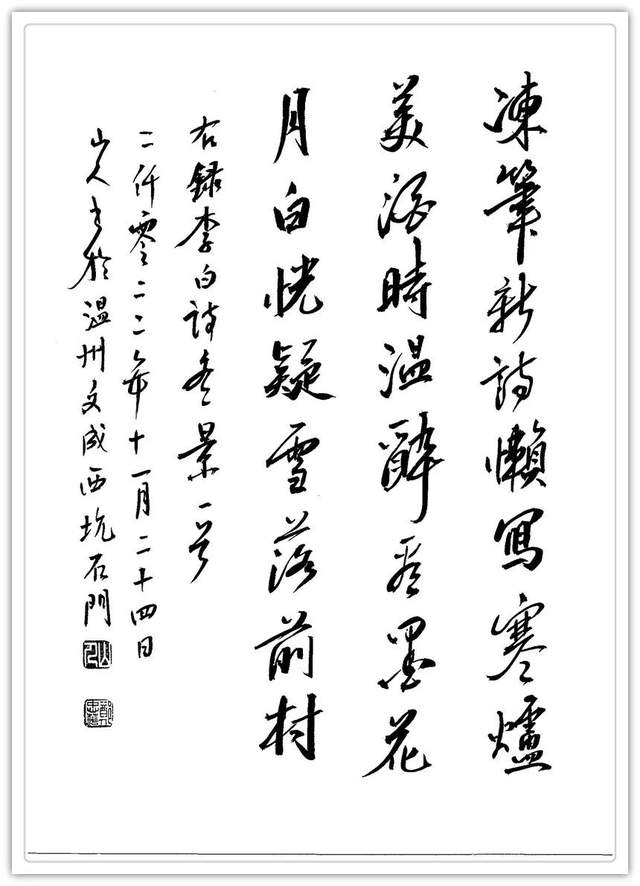 凍筆新詩懶寫寒爐
美酒時溫醉看墨花
月白恍疑雪落前村
右錄李白詩冬景一首
二仟零二二年十一月二十四日
山人书於溫州文成西坑石門